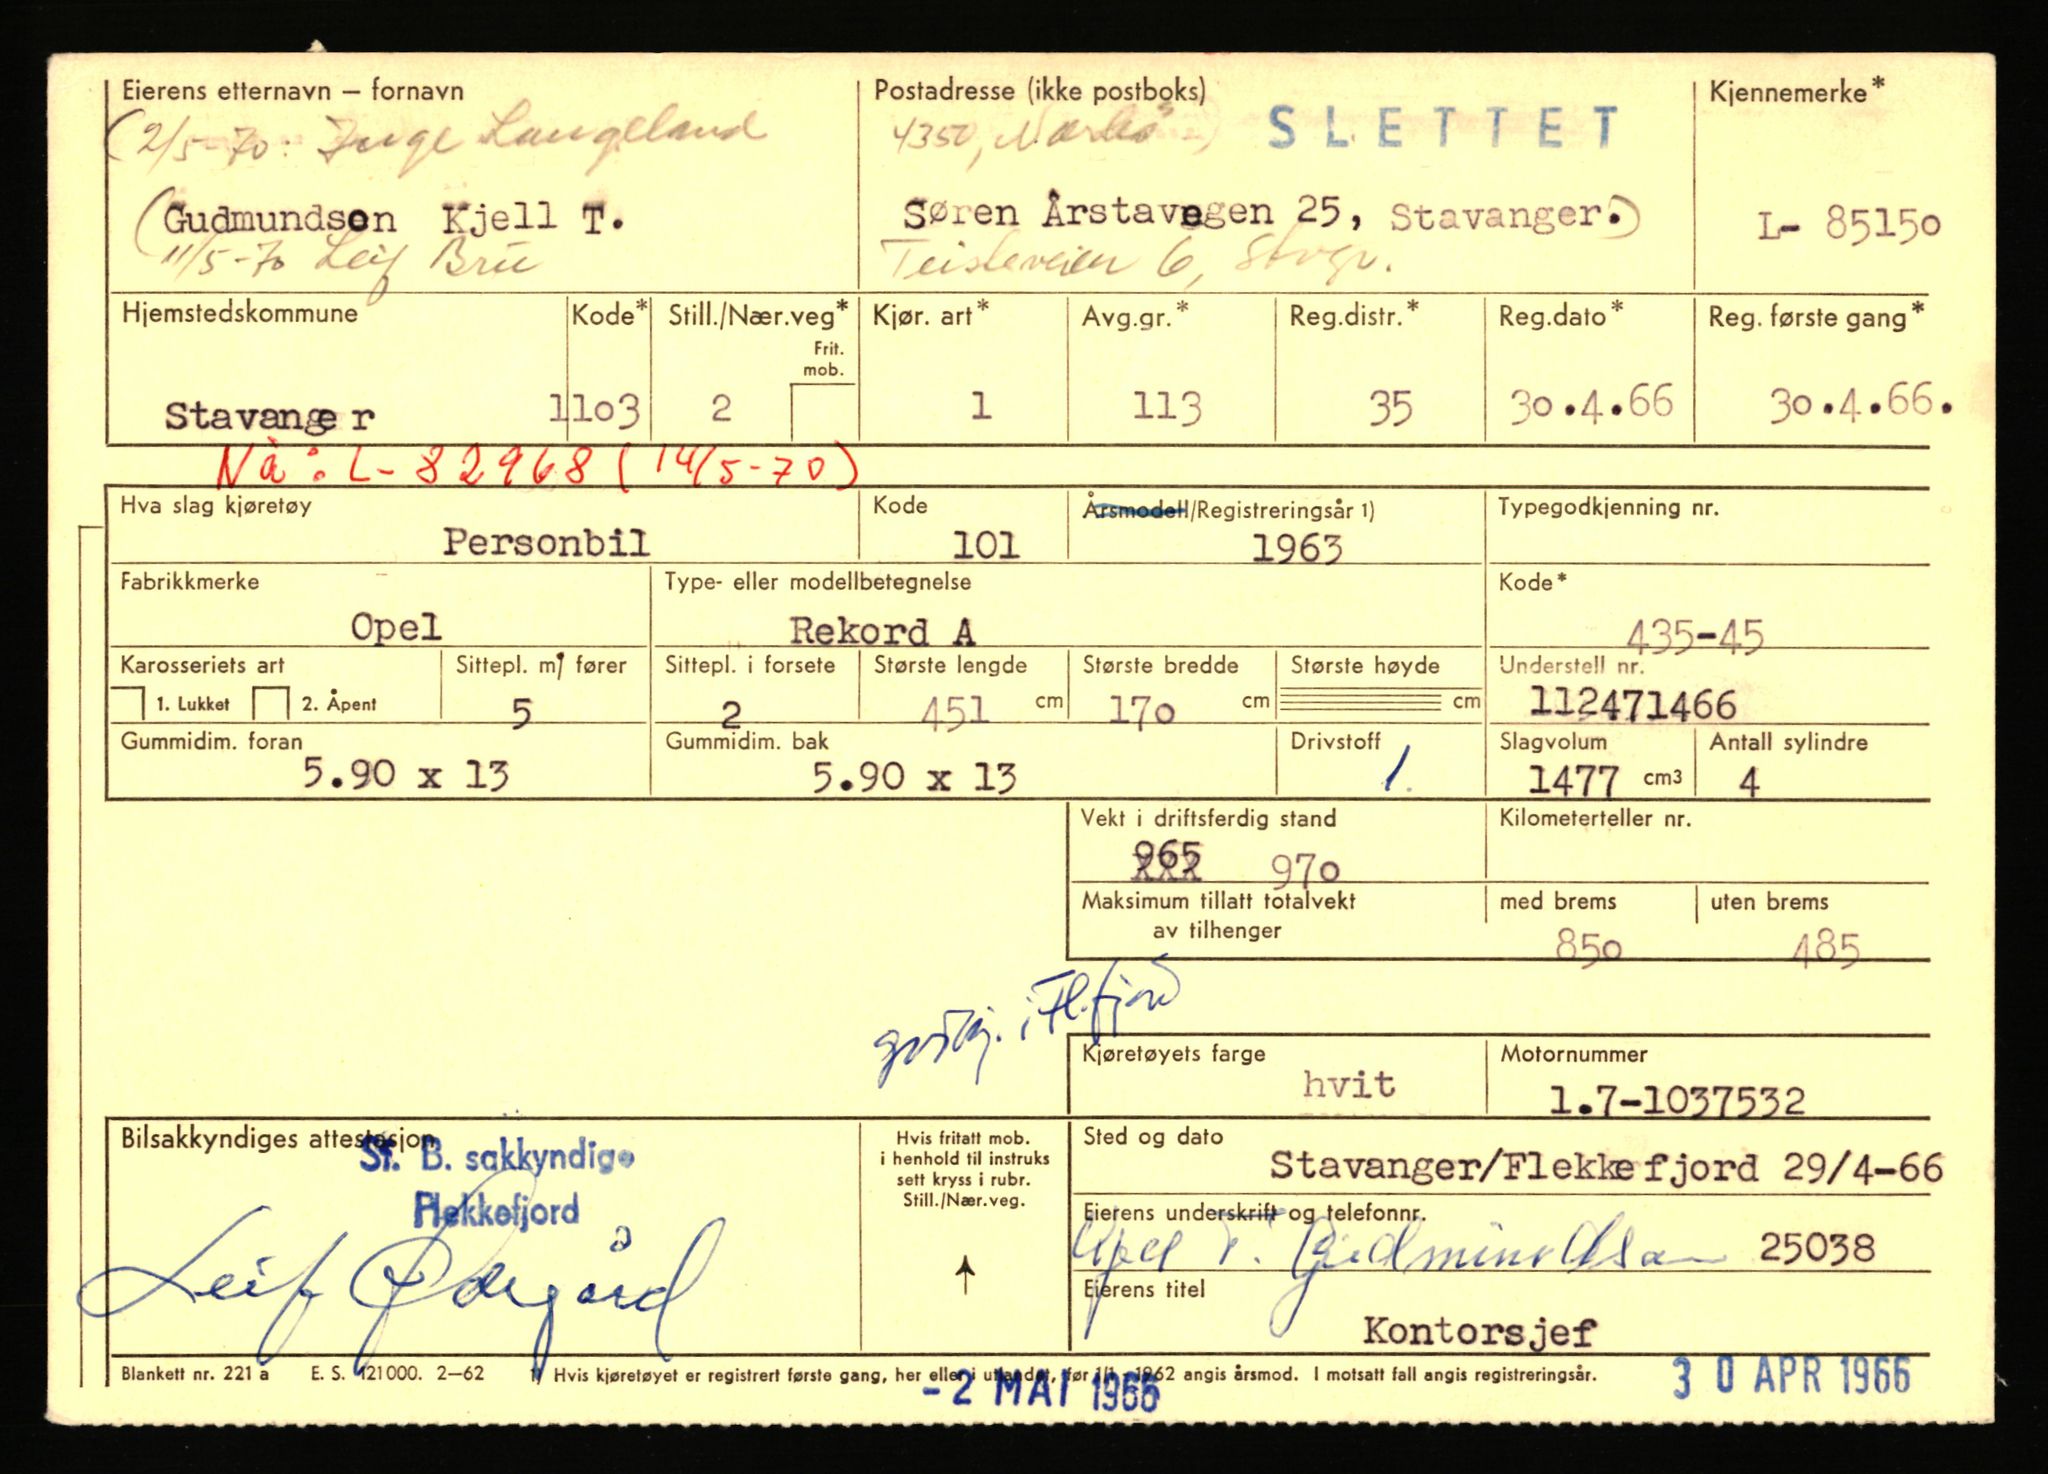 Eierens etternavn – fornavn
Postadresse (ikke postboks)
Kjennemerke*
(2/5-70: Inge Langeland
4350, Nærbø)
SLETTET
(Gudmundson Kjell T.
Søren Årstavegen 25, Stavanger.)
L- 85150
11/5-70 Leif Brü
Teisteveien 6, Stvgr.
Hjemstedskommune
Kode*
Still./Nær.veg*
Frit. mob.
Kjør. art*
Avg.gr.*
Reg.distr.*
Reg.dato*
Reg. første gang*
Stavanger
1103
2
1
113
35
30.4.66
30.4.66.
Nå: L-82968 (14/5-70)
Hva slag kjøretøy
Kode
Årsmodell/Registreringsår 1)
Typegodkjenning nr.
Personbil
101
1963
Fabrikkmerke
Type- eller modellbetegnelse
Kode*
Opel
Rekord A
435-45
Karosseriets art
Sittepl. m/ fører
Sittepl. i forsete
Største lengde
Største bredde
Største høyde
Understell nr.
1. Lukket
2. Åpent
5
2
451 cm
170 cm
cm
112471466
Gummidim. foran
Gummidim. bak
Drivstoff
Slagvolum
Antall sylindre
5.90 x 13
5.90 x 13
1.
1477 cm3
4
Vekt i driftsferdig stand
Kilometerteller nr.
965 970
Maksimum tillatt totalvekt
av tilhenger
med brems
uten brems
850
485
i Fl.fjord
Kjøretøyets farge
Motornummer
hvit
1.7-1037532
Bilsakkyndiges attestasjon
St. B. sakkyndige
Flekkefjord
Hvis fritatt mob.
i henhold til instruks
sett kryss i rubr.
Still./Nær.veg.
Sted og dato
Stavanger/Flekkefjord 29/4-66
Eierens underskrift og telefonnr.
Kjell T. Gudmundson 25038
Leif
Eierens titel
Kontorsjef
Blankett nr. 221 a E. S. 121000. 2–62 1) Hvis kjøretøyet er registrert første gang, her eller i utlandet, før 1/1 1962 angis årsmod. I motsatt fall angis registreringsår.
-2 MAI 1966
30 APR 1966